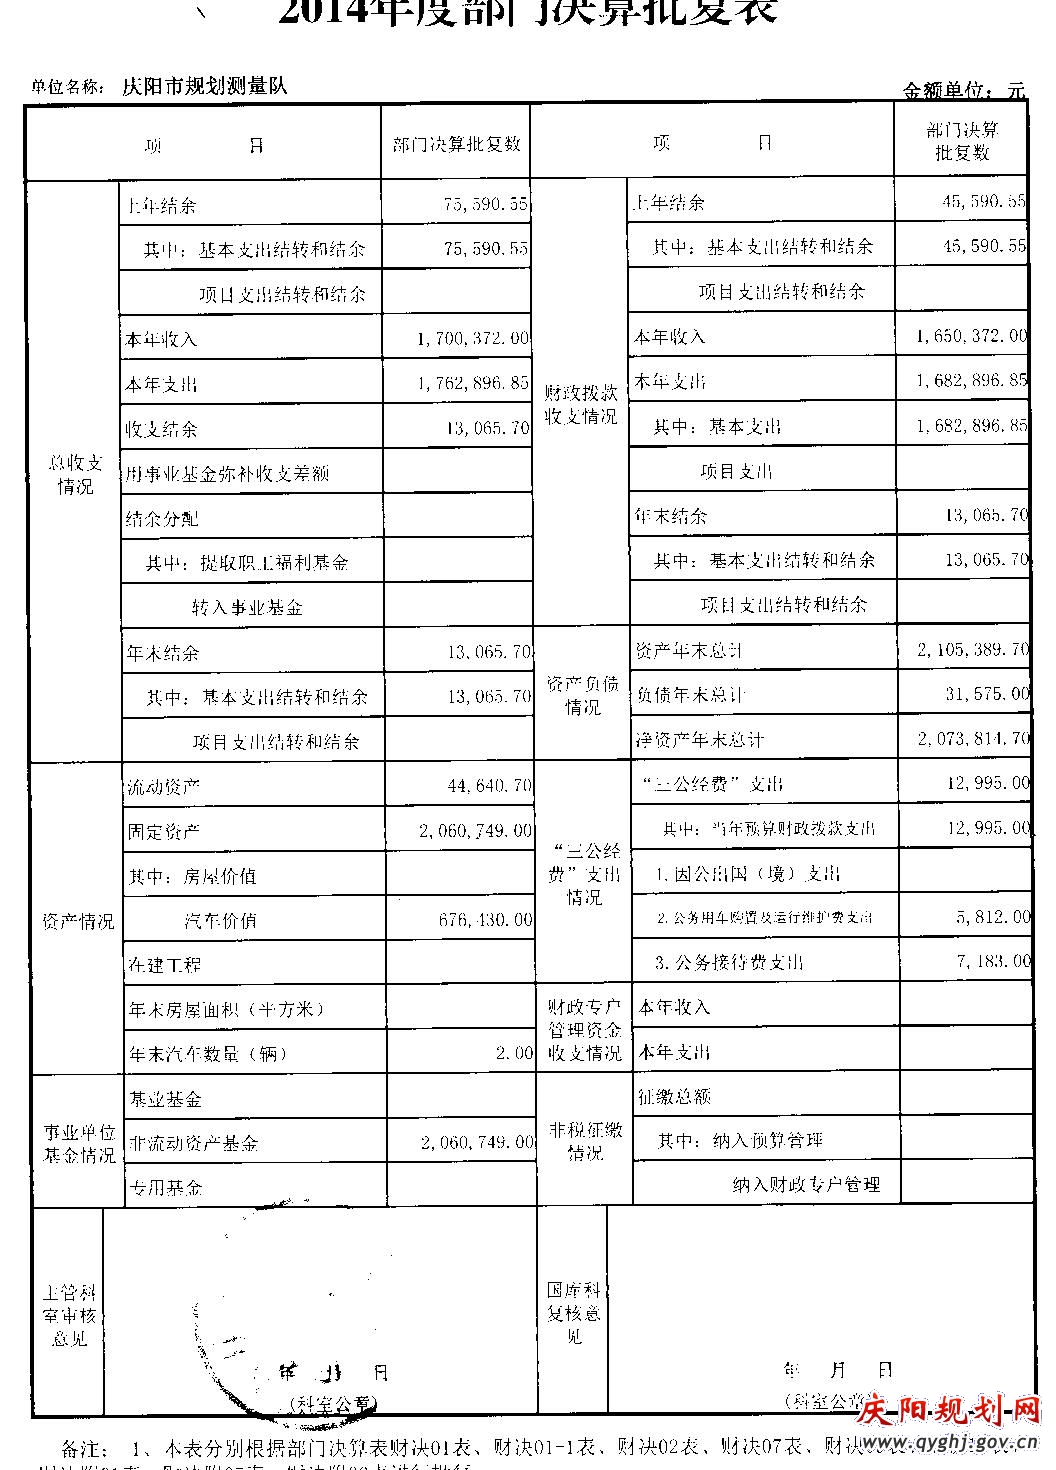 2014年度部门决算批复表
单位名称： 庆阳市规划测量队
金额单位：元
项 目 部门决算批复数 项 目 部门决算批复数
总收支情况
上年结余 75,590.55
其中：基本支出结转和结余 75,590.55
项目支出结转和结余
本年收入 1,700,372.00
本年支出 1,762,896.85
收支结余 13,065.70
用事业基金弥补收支差额
结余分配
其中：提取职工福利基金
转入事业基金
年末结余 13,065.70
其中：基本支出结转和结余 13,065.70
项目支出结转和结余
资产情况
流动资产 44,640.70
固定资产 2,060,749.00
其中：房屋价值
汽车价值 676,430.00
在建工程
年末房屋面积（平方米）
年末汽车数量（辆） 2.00
事业单位基金情况
基业基金
非流动资产基金 2,060,749.00
专用基金
财政拨款收支情况
上年结余 45,590.55
其中：基本支出结转和结余 45,590.55
项目支出结转和结余
本年收入 1,650,372.00
本年支出 1,682,896.85
其中：基本支出 1,682,896.85
项目支出
年末结余 13,065.70
其中：基本支出结转和结余 13,065.70
项目支出结转和结余
资产负债情况
资产年末总计 2,105,389.70
负债年末总计 31,575.00
净资产年末总计 2,073,814.70
“三公经费”支出情况
“三公经费”支出 12,995.00
其中：当年预算财政拨款支出 12,995.00
1.因公出国（境）支出
2.公务用车购置及运行维护费支出 5,812.00
3.公务接待费支出 7,183.00
财政专户管理资金收支情况
本年收入
本年支出
非税征缴情况
征缴总额
其中：纳入预算管理
纳入财政专户管理
主管科室审核意见
年 月 日
（科室公章）
国库科复核意见
年 月 日
（科室公章）
庆阳规划网
www.qyghj.gov.cn
备注： 1、本表分别根据部门决算表财决01表、财决01-1表、财决02表、财决07表、